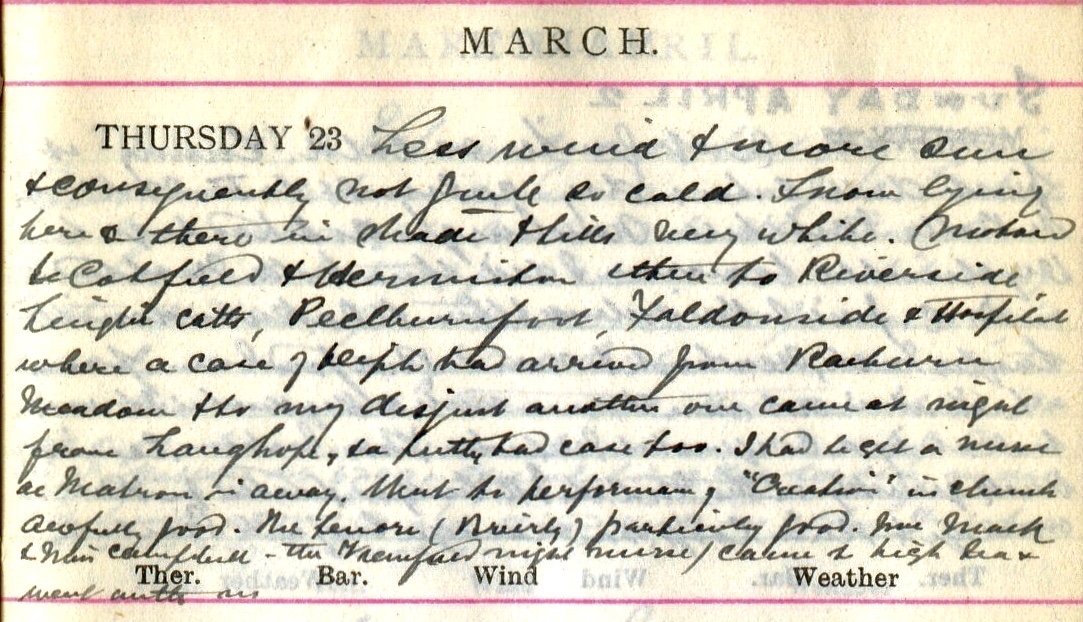 MARCH.
THURSDAY 23 Less wind & more sun
& consequently not quite so cold. Snow lying
here & there in shade & hills very white. Motored
to Cobfield & Hermiston & then to Riverside
Peelburnfoot, Faldonside & Hospital
where a case of diph had arrived from Raeburn
Meadow & to my disgust another one came at night
from Langhope, & a pretty bad case too. I had to get a nurse
as Matron is away. Went to performance of "Creation" in church
awfully good. The tenor particularly good. Mrs Mack
& Miss Campbell - the night nurse) came to high tea &
Ther. Bar. Wind Weather
went with us